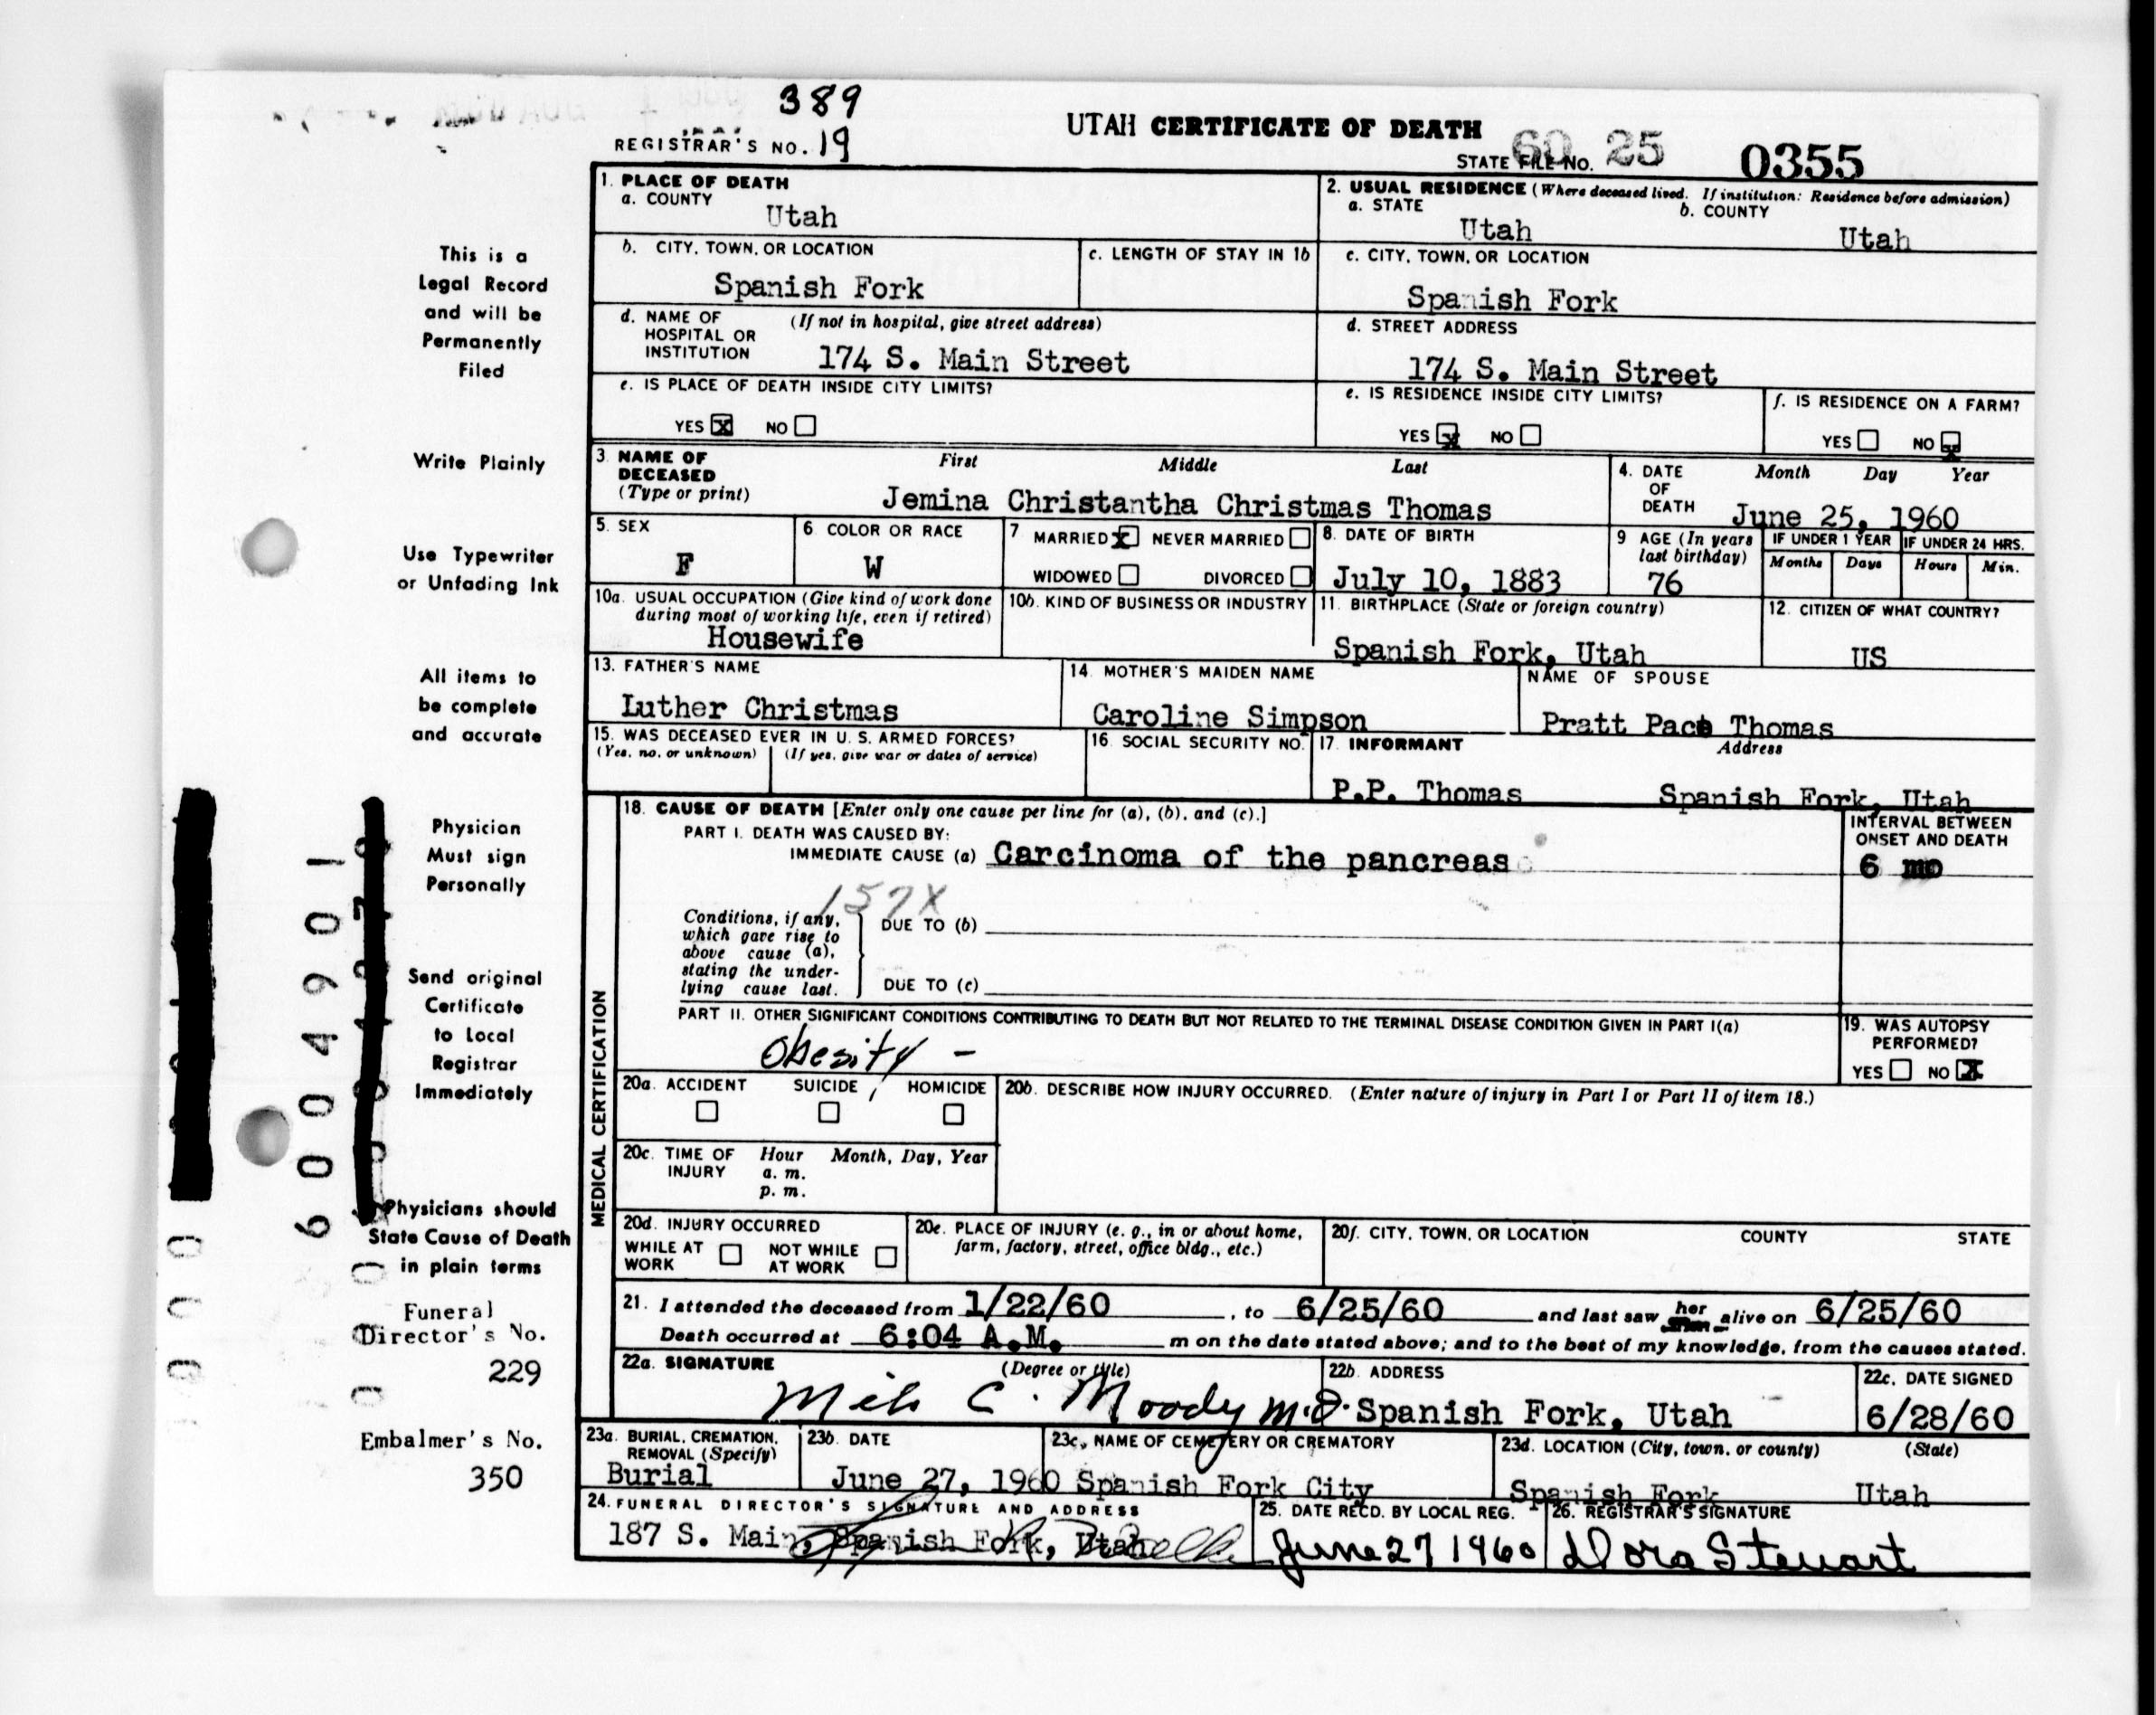 389
REGISTRAR'S NO. 19
UTAH CERTIFICATE OF DEATH
STATE FILE NO. 60 25 0355
This is a
Legal Record
and will be
Permanently
Filed
Write Plainly
Use Typewriter
or Unfading Ink
All items to
be complete
and accurate
Physician
Must sign
Personally
Send original
Certificate
to Local
Registrar
Immediately
Physicians should
State Cause of Death
in plain terms
Funeral
Director's No.
229
Embalmer's No.
350
6004901
1. PLACE OF DEATH
a. COUNTY
Utah
2. USUAL RESIDENCE (Where deceased lived. If institution: Residence before admission)
a. STATE b. COUNTY
Utah Utah
b. CITY, TOWN, OR LOCATION
Spanish Fork
c. LENGTH OF STAY IN 1b
c. CITY, TOWN, OR LOCATION
Spanish Fork
d. NAME OF (If not in hospital, give street address)
HOSPITAL OR
INSTITUTION 174 S. Main Street
d. STREET ADDRESS
174 S. Main Street
e. IS PLACE OF DEATH INSIDE CITY LIMITS?
YES X NO
e. IS RESIDENCE INSIDE CITY LIMITS?
YES X NO
f. IS RESIDENCE ON A FARM?
YES NO X
3. NAME OF First Middle Last
DECEASED
(Type or print) Jemina Christantha Christmas Thomas
4. DATE Month Day Year
OF
DEATH June 25, 1960
5. SEX
F
6. COLOR OR RACE
W
7. MARRIED X NEVER MARRIED
WIDOWED DIVORCED
8. DATE OF BIRTH
July 10, 1883
9. AGE (In years
last birthday)
76
IF UNDER 1 YEAR
Months Days
IF UNDER 24 HRS.
Hours Min.
10a. USUAL OCCUPATION (Give kind of work done
during most of working life, even if retired)
Housewife
10b. KIND OF BUSINESS OR INDUSTRY
11. BIRTHPLACE (State or foreign country)
Spanish Fork, Utah
12. CITIZEN OF WHAT COUNTRY?
US
13. FATHER'S NAME
Luther Christmas
14. MOTHER'S MAIDEN NAME
Caroline Simpson
NAME OF SPOUSE
Pratt Pace Thomas
15. WAS DECEASED EVER IN U. S. ARMED FORCES?
(Yes, no, or unknown) (If yes, give war or dates of service)
16. SOCIAL SECURITY NO.
17. INFORMANT Address
P.P. Thomas Spanish Fork, Utah
MEDICAL CERTIFICATION
18. CAUSE OF DEATH [Enter only one cause per line for (a), (b), and (c).]
PART I. DEATH WAS CAUSED BY:
IMMEDIATE CAUSE (a) Carcinoma of the pancreas
INTERVAL BETWEEN
ONSET AND DEATH
6 mo
157X
Conditions, if any,
which gave rise to
above cause (a),
stating the under-
lying cause last.
DUE TO (b)
DUE TO (c)
PART II. OTHER SIGNIFICANT CONDITIONS CONTRIBUTING TO DEATH BUT NOT RELATED TO THE TERMINAL DISEASE CONDITION GIVEN IN PART I(a)
Obesity -
19. WAS AUTOPSY
PERFORMED?
YES NO X
20a. ACCIDENT SUICIDE HOMICIDE
20b. DESCRIBE HOW INJURY OCCURRED. (Enter nature of injury in Part I or Part II of item 18.)
20c. TIME OF Hour Month, Day, Year
INJURY a. m.
p. m.
20d. INJURY OCCURRED
WHILE AT NOT WHILE
WORK AT WORK
20e. PLACE OF INJURY (e. g., in or about home,
farm, factory, street, office bldg., etc.)
20f. CITY, TOWN, OR LOCATION COUNTY STATE
21. I attended the deceased from 1/22/60, to 6/25/60 and last saw her alive on 6/25/60
Death occurred at 6:04 A.M. m on the date stated above; and to the best of my knowledge, from the causes stated.
22a. SIGNATURE (Degree or title)
C. Moody M.D.
22b. ADDRESS
Spanish Fork, Utah
22c. DATE SIGNED
6/28/60
23a. BURIAL, CREMATION,
REMOVAL (Specify)
Burial
23b. DATE
June 27, 1960
23c. NAME OF CEMETERY OR CREMATORY
Spanish Fork City
23d. LOCATION (City, town, or county) (State)
Spanish Fork Utah
24. FUNERAL DIRECTOR'S SIGNATURE AND ADDRESS
187 S. Main, Spanish Fork, Utah
25. DATE RECD. BY LOCAL REG.
June 27 1960
26. REGISTRAR'S SIGNATURE
Dora Stewart